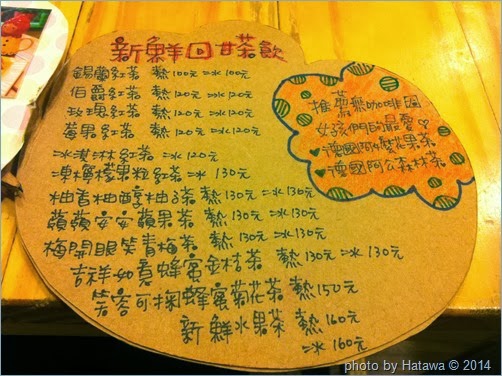 新鮮回甘茶飲
錫蘭紅茶 熱100元 冰100元
伯爵紅茶 熱120元 冰120元
玫瑰紅茶 熱120元 冰120元
莓果紅茶 熱120元 冰120元
冰淇淋紅茶 冰120元
凍檸檬果粒紅茶 冰130元
柚香柚醇柚子茶 熱130元 冰130元
蘋蘋安安蘋果茶 熱130元 冰130元
梅開眼笑青梅茶 熱130元 冰130元
吉祥如意蜂蜜金桔茶 熱130元 冰130元
笑容可掬蜂蜜菊花茶 熱150元
新鮮水果茶 熱160元
冰160元
推薦無咖啡因
女孩們的最愛♡
♥德國阿嬤花果茶
♥德國阿公森林茶
photo by Hatawa © 2014